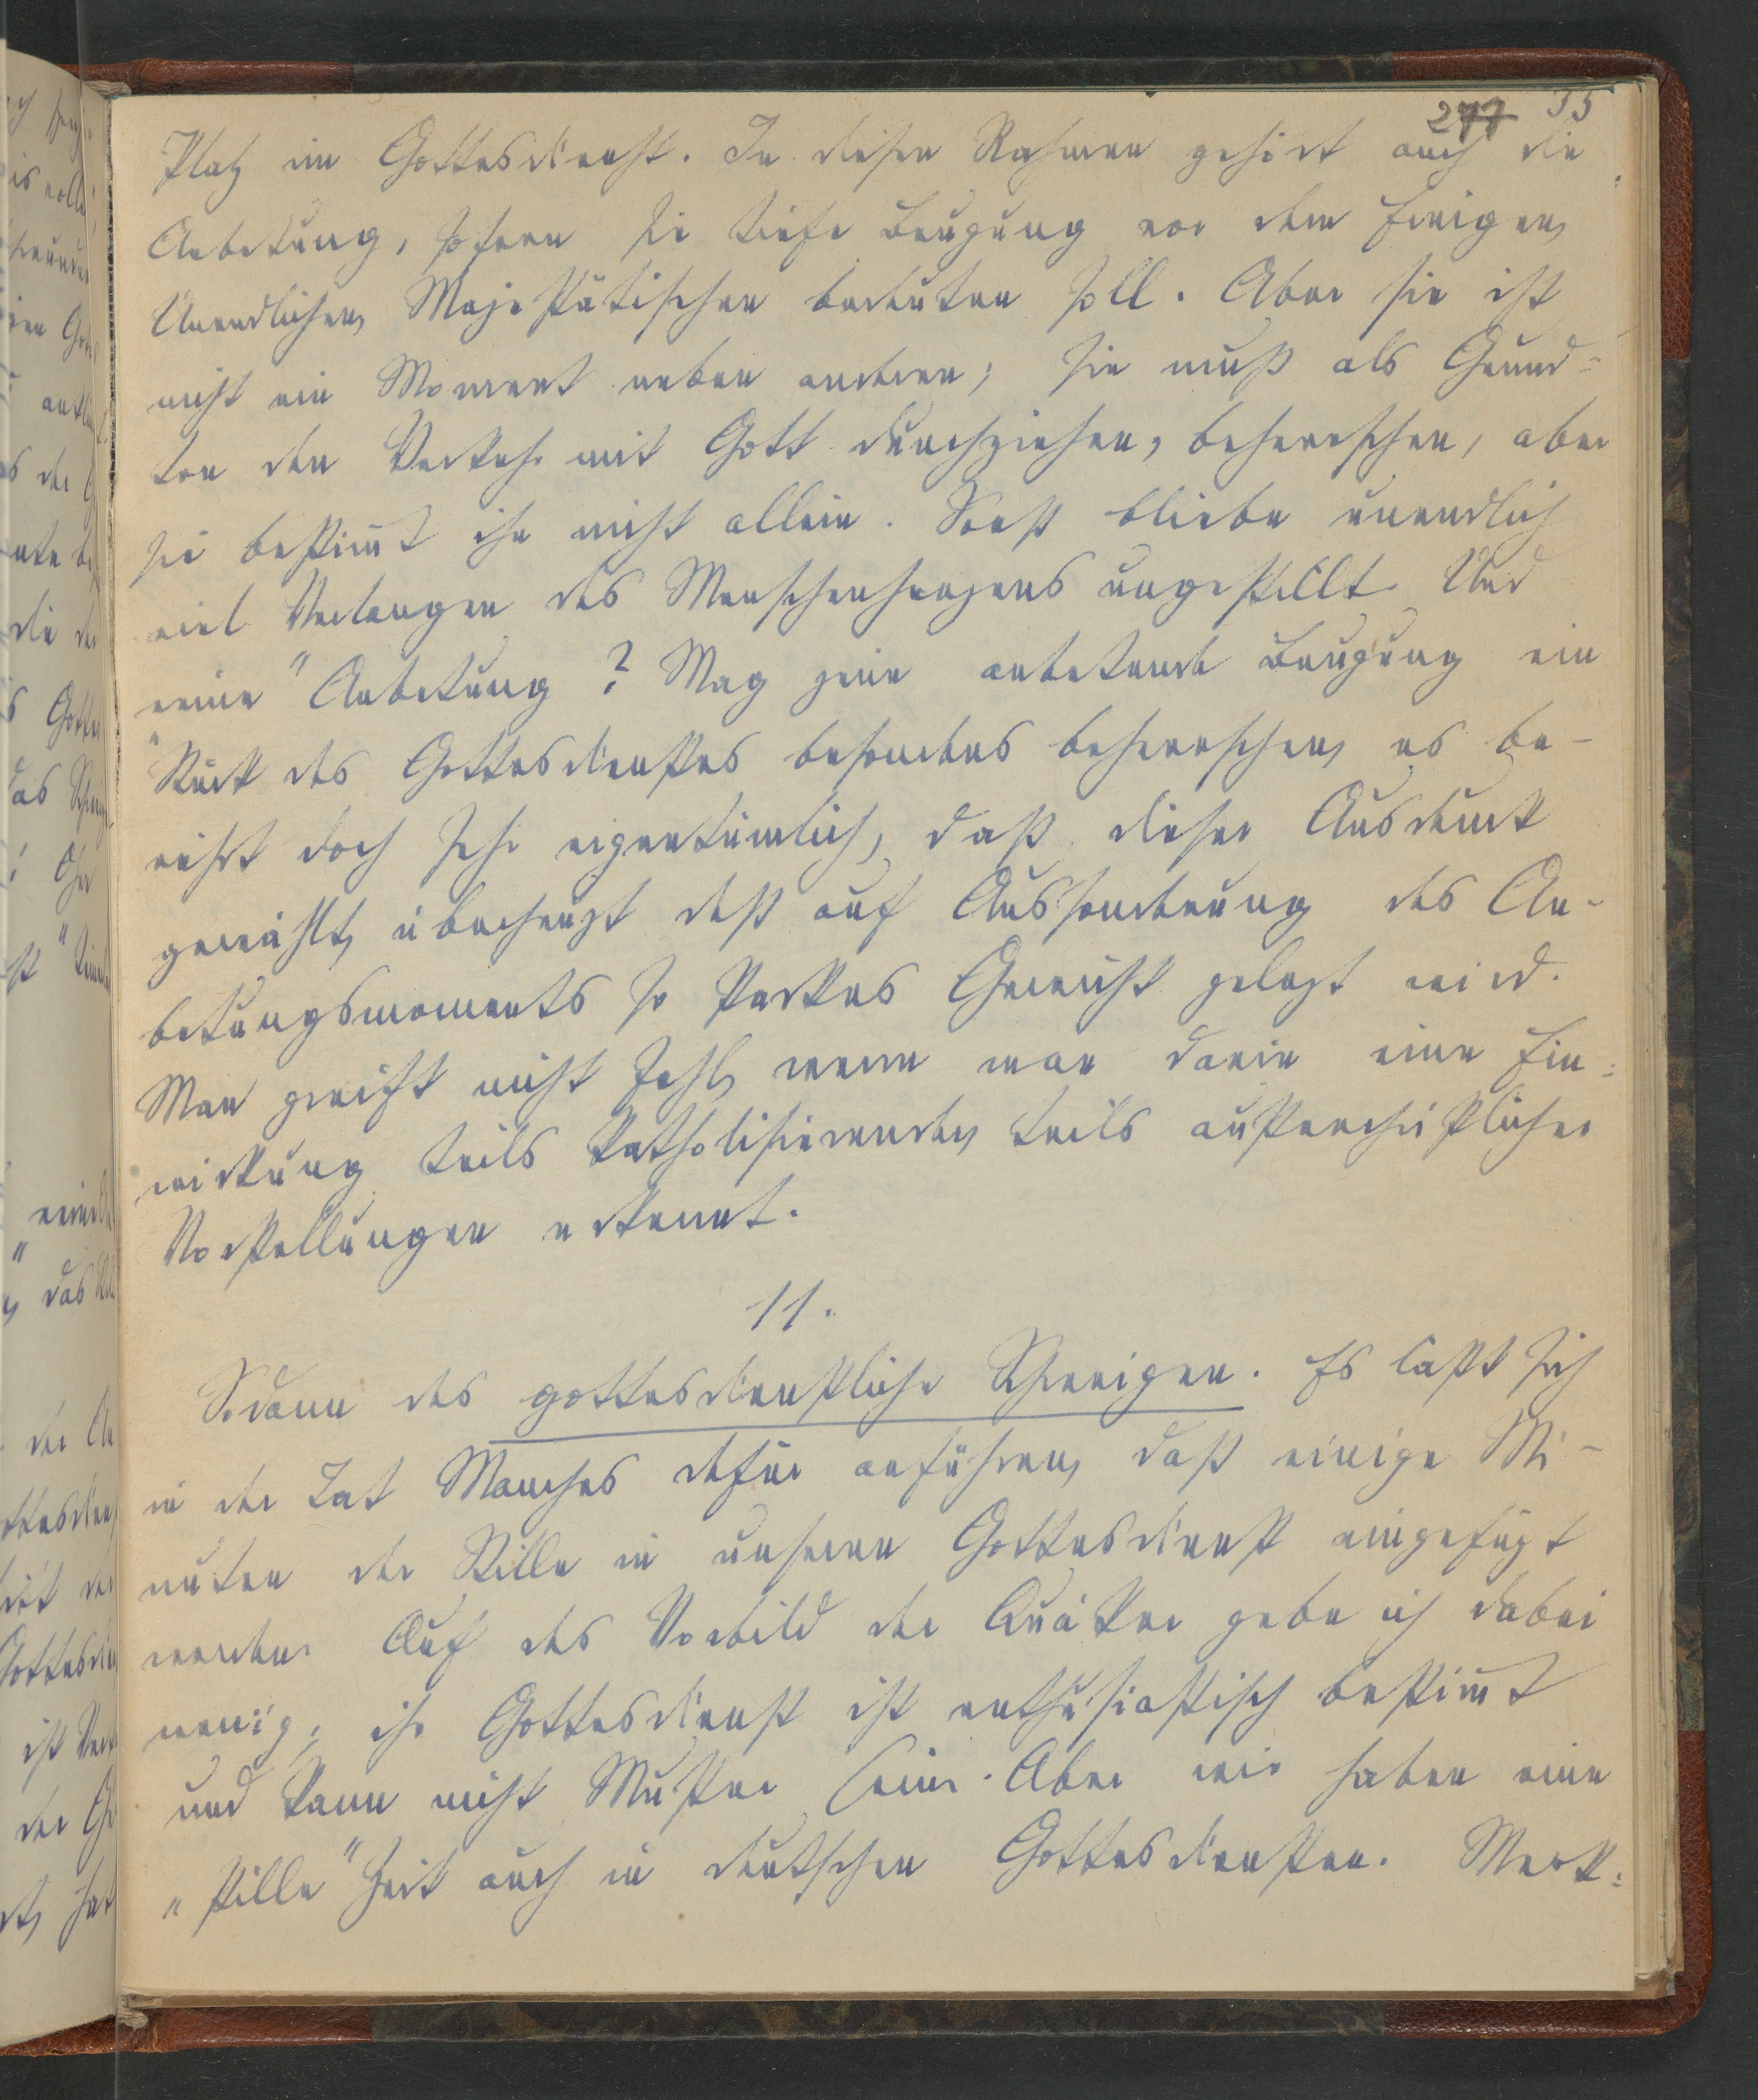 277 35
Platz im Gottesdienst. In diesen Rahmen gehört auch die
Anbetung, sofern sie tiefe Beugung vor dem Ewigen,
Unendlichen, Majestätischen bedeuten soll. Aber sie ist
nicht ein Moment neben anderen; sie muß als Grund=
ton den Verkehr mit Gott durchziehen, beherrschen, aber
sie bestim̄t ihn nicht allein. Sonst bliebe unendlich
viel Verlangen des Menschenherzens ungestillt. Und
„reine" Anbetung? Mag jene anbetende Beugung ein
Stück des Gottesdienstes besonders beherrschen, es be-
rührt doch sehr eigentümlich, daß dieser Ausdruck
gewählt, überhaupt daß auf Aussonderung des An-
betungsmoments so starkes Gewicht gelegt wird.
Man greift nicht fehl, wenn man darin eine Ein=
wirkung teils katholisierender, teils außerchristlicher
Vorstellungen erkennt.
11.
Sodann das gottesdienstliche Schweigen. Es läßt sich
in der Tat Manches dafür anführen, daß einige Mi-
nuten der Stille in unseren Gottesdienst eingefügt
werden. Auf das Vorbild der Quäker gebe ich dabei
wenig; ihr Gottesdienst ist enthusiastisch bestim̄t
und kann nicht Muster sein. Aber wir haben eine
„stille" Zeit auch in deutschen Gottesdiensten. Merk=